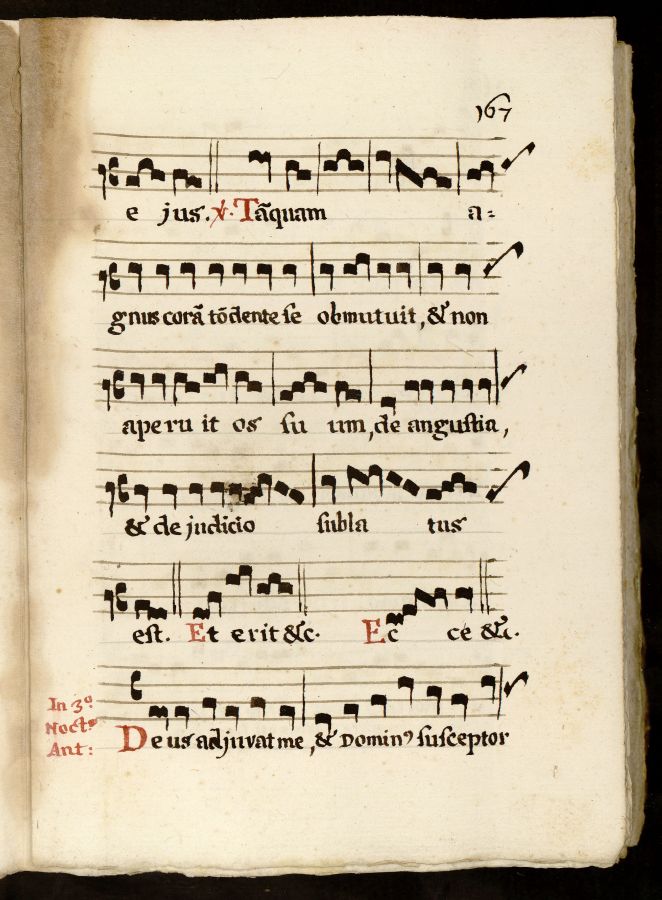 167
e jus. ℣. Tãquam a=
gnus corã tõdente se obmutuit, & non
aperu it os su um, de angustia,
& de judicio subla tus
est. Et erit &c. Ec ce &c.
In 3º
Noctº
Ant:
Deus adjuvat me, & Dominꝰ susceptor